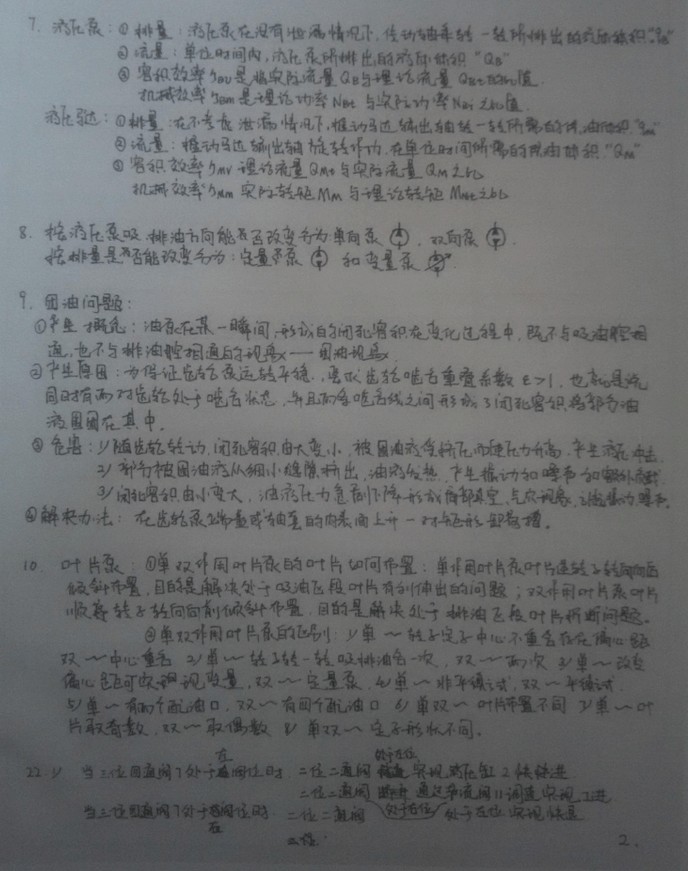 7. 液压泵：① 排量：液压泵在没有泄漏情况下，传动轴每转一转所排出的油液体积"qB"
② 流量：单位时间内，液压泵所排出的液体体积"QB"
③ 容积效率ηBv是指实际流量QB与理论流量QBt的比值
机械效率ηBm是理论功率NBt与实际功率NBi之比值
液压马达：① 排量：在不考虑泄漏情况下，推动马达输出轴转一转所需的供油体积"qm"
② 流量：推动马达输出轴旋转作功，在单位时间所需的供油体积"Qm"
③ 容积效率ηmv 理论流量Qmt与实际流量Qm之比
机械效率ηmm 实际转矩Mm与理论转矩Mmt之比
8. 按液压泵吸、排油方向能否改变分为：单向泵，双向泵
按排量是否能改变分为：定量泵 和变量泵
9. 困油问题：
① 产生概念：油泵在某一瞬间，形成的闭死容积在变化过程中，既不与吸油腔相
通，也不与排油腔相通的现象——困油现象
② 产生原因：为保证齿轮泵运转平稳，要求齿轮啮合重叠系数ε>1，也就是说
同时有两对齿轮处于啮合状态，并且两个啮合线之间形成了闭死容积，将部分油
液困围在其中。
③ 危害：1) 随齿轮转动，闭死容积由大变小，被困油液受挤压而使压力升高，产生液压冲击
2) 部分被困油液从细小缝隙挤出，油液发热，产生振动和噪声和额外负载
3) 闭死容积由小变大，油液压力急剧下降形成局部真空，气穴现象，引起振动、噪声。
④ 解决办法：在齿轮泵端盖或轴套的内表面上开一对矩形卸荷槽。
10. 叶片泵：① 单双作用叶片泵的叶片如何布置：单作用叶片泵叶片逆转子转向向后
倾斜布置，目的是解决处于吸油区段叶片有利伸出的问题；双作用叶片泵叶片
顺着转子转向向前倾斜布置，目的是解决处于排油区段叶片折断问题。
② 单双作用叶片泵的区别：1) 单～转子定子中心不重合存在偏心距
双～中心重合 2) 单～转子转一转吸排油各一次，双～两次 3) 单～改变
偏心距即可实现变量，双～定量泵 4) 单～非平衡式，双～平衡式
5) 单～有两个配油口，双～有四个配油口 6) 单双～叶片布置不同 7) 单～叶
片取奇数，双～取偶数 8) 单双～定子形状不同。
左 处于左位
22. 1) 当三位四通阀7处于左位时，二位二通阀 实现液压缸2快进
二位二通阀 通过节流阀11调速实现工进
当三位四通阀7处于右位时，二位二通阀 处于左位实现快退
右
2.